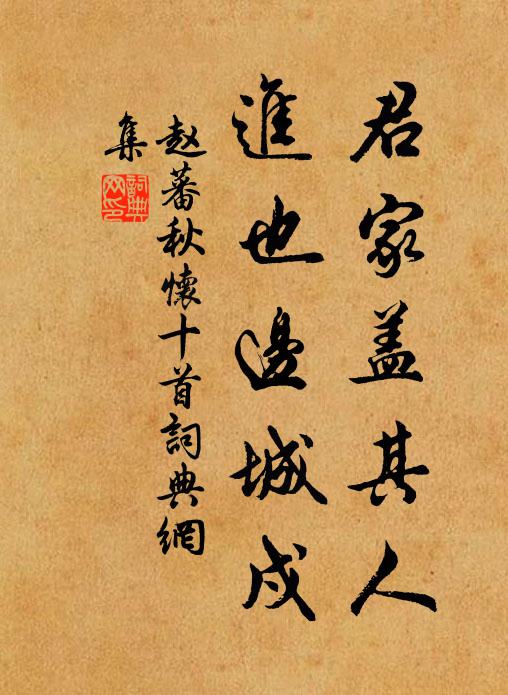 君家盖其人
進也邊城戍
赵蕃秋懷十首詞典網
集
詞典网印